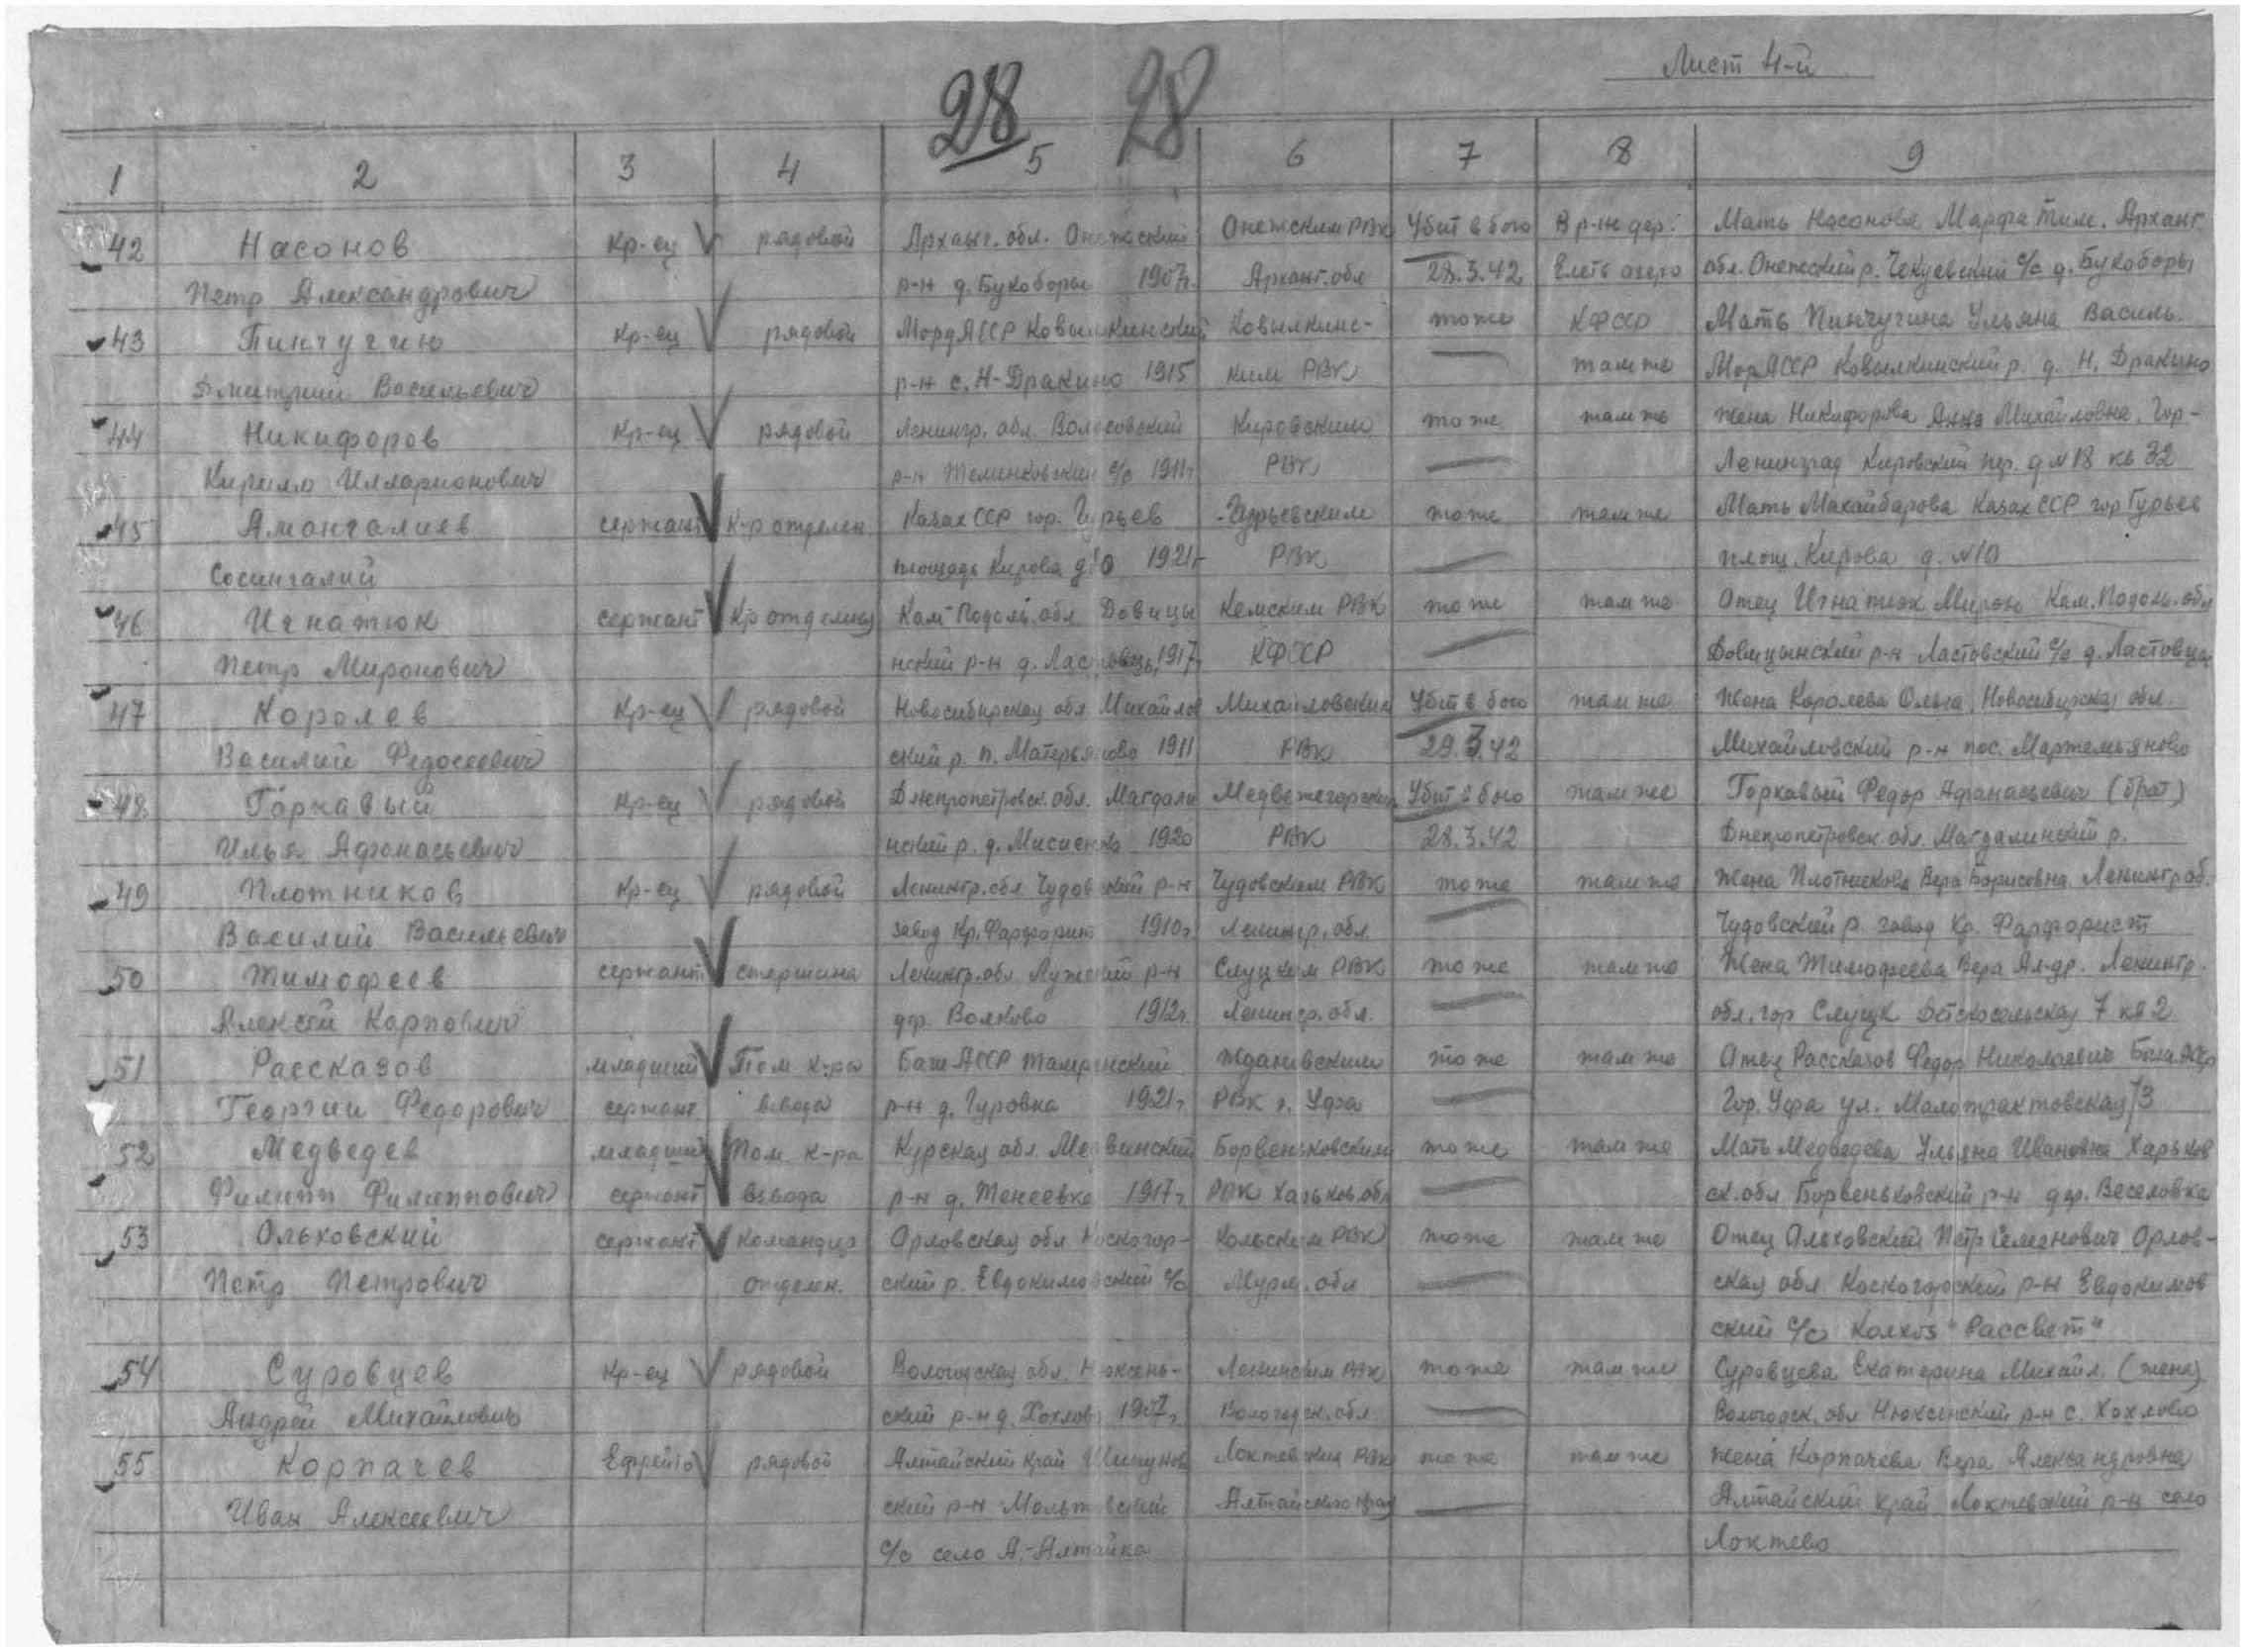 Лист 4-й
28 28
1 2 3 4 5 6 7 8 9
42 Насонов Кр-ец рядовой Арханг. обл. Онежский Онежским РВК Убит в бою В р-не дер. Мать Насонова Марфа Тим. Арханг.
Петр Александрович р-н д. Букоборы 1907г. Арханг. обл 28.3.42 Елеть озеро обл. Онежский р. Чекуевский с/с д. Букоборы
43 Пинчугин Кр-ец рядовой МордАССР Ковылкинский Ковылкинс- то же КФССР Мать Пинчугина Ульяна Василь.
Дмитрий Васильевич р-н с. Н-Дракино 1915 ким РВК там же МорАССР Ковылкинский р. д. Н. Дракино
44 Никифоров Кр-ец рядовой Ленингр. обл. Волосовский Кировским то же там же Жена Никифорова Анна Михайловна. Гор-
Кирилл Илларионович р-н с/с 1911г РВК Ленинград Кировский пер. д №18 кв 32
45 Амангалиев сержант К-р отделен КазахССР гор. Гурьев Гурьевским то же там же Мать Махайбарова КазахССР гор Гурьев
Сосингалий площадь Кирова д 10 1921г РВК площ. Кирова д. №10
46 Игнатюк сержант Кр отделен Кам-Подоль. обл. Довицы Кемским РВК то же там же Отец Игнатюк Мирон Кам. Подоль. обл
Петр Миронович нский р-н д. Ластовцы 1917г КФССР Довицынский р-н Ластовский с/с д. Ластовцы
47 Королев Кр-ец рядовой Новосибирская обл Михайлов Михайловским Убит в бою там же Жена Королева Ольга, Новосибирская обл.
Василий Федосеевич ский р. п. Матерьяново 1911 РВК 29.3.42 Михайловский р-н пос. Мартемьяново
48 Горкавый Кр-ец рядовой Днепропетровск. обл. Магдали Медвежегорским Убит в бою там же Горкавый Федор Афанасьевич (брат)
Илья Афонасьевич нский р. д. 1920 РВК 28.3.42 Днепропетровск. обл. Магдалинский р.
49 Плотников Кр-ец рядовой Ленингр. обл Чудовский р-н Чудовским РВК то же там же Жена Плотникова Вера Борисовна Ленингр об.
Василий Васильевич завод Кр. Фарфорист 1910г Ленингр. обл. Чудовский р. завод Кр. Фарфорист
50 Тимофеев сержант старшина Ленингр. обл Лужский р-н Слуцким РВК то же там же Жена Тимофеева Вера Ал-др. Ленингр.
Алексей Карпович дер. Волково 1912г. Ленингр. обл. обл. гор Слуцк Детскосельская 7 кв 2
51 Рассказов младший Пом к-ра Баш АССР Ждановским то же там же Отец Рассказов Федор Николаевич Баш АССР
Георгий Федорович сержант взвода р-н д. Гуровка 1921г РВК г. Уфа Гор. Уфа ул. Малотрактовская 73
52 Медведев младший Пом. к-ра Курская обл. Борвеньковским то же там же Мать Медведева Ульяна Ивановна Харьков
Филипп Филиппович сержант взвода р-н д. Тенеевка 1917г. РВК Харьков. обл ск. обл Борвеньковский р-н дер. Веселовка
53 Ольховский сержант командир Орловская обл Коскогор- Кольским РВК то же там же Отец Ольховский Петр Семенович Орлов-
Петр Петрович отделен. ский р. Евдокимовский с/с Мурм. обл ская обл. Коскогорский р-н Евдокимов
ский с/с Колхоз "Рассвет"
54 Суровцев Кр-ец рядовой Вологодская обл. Нюксень- Ленинским РВК то же там же Суровцева Екатерина Михайл. (жена)
Андрей Михайлович ский р-н д. Хохлово 1907г. Вологодск. обл Вологодск. обл Нюксенский р-н с. Хохлово
55 Корпачев Ефрейто рядовой Алтайский край Шипунов Локтевским РВК то же там же Жена Корпачева Вера Александровна
Иван Алексеевич ский р-н Алтайского края Алтайский край Локтевский р-н село
с/с село А.-Алтайка Локтево